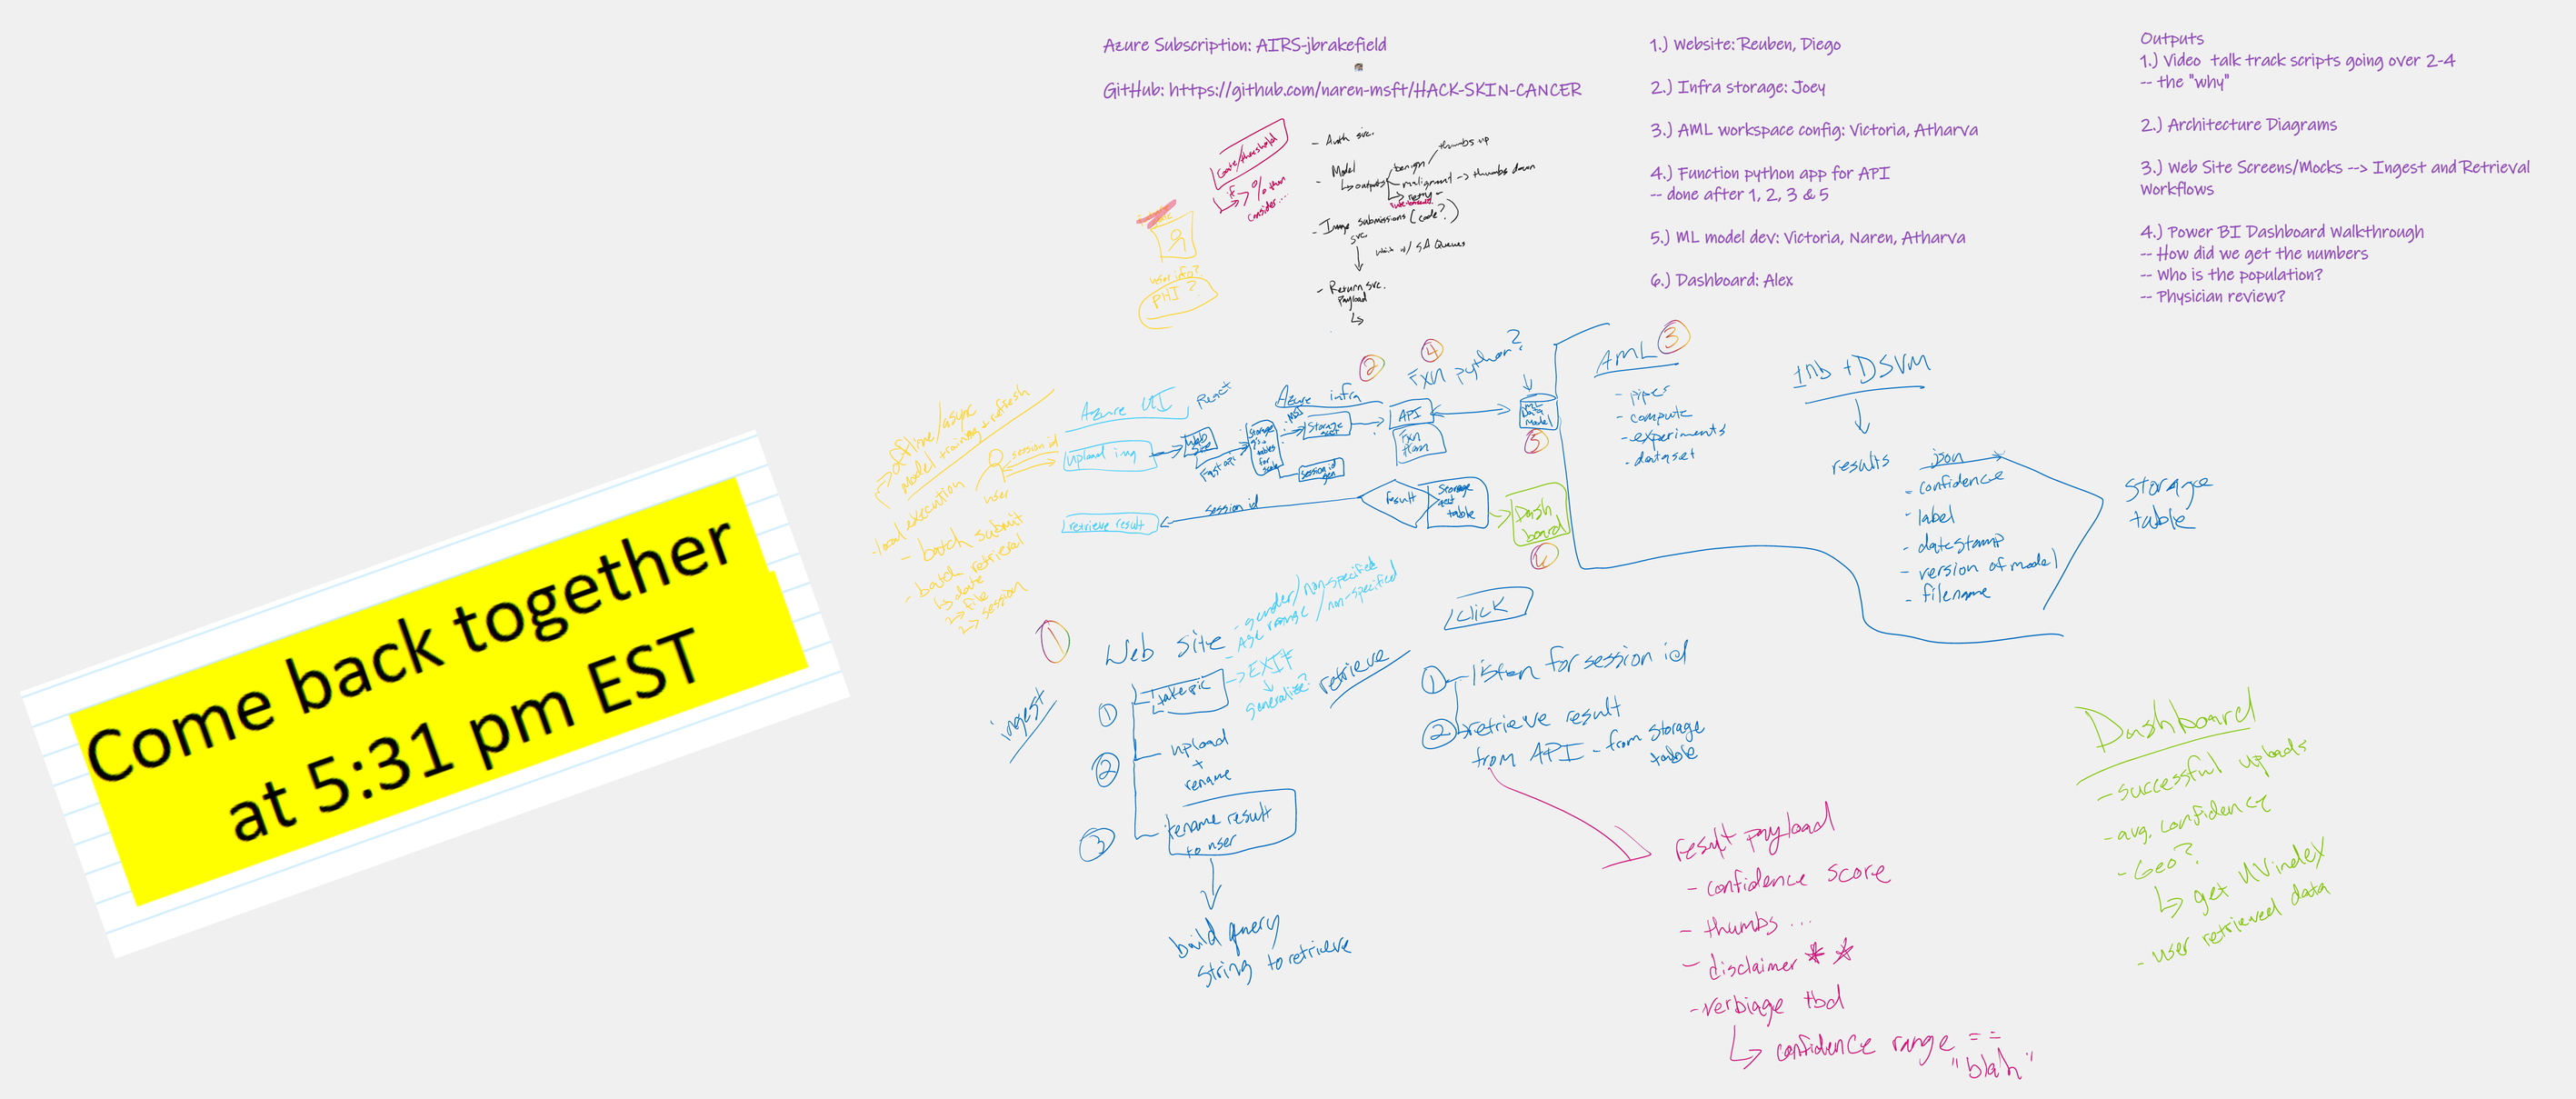 Azure Subscription: AIRS-jbrakefield
GitHub: https://github.com/naren-msft/HACK-SKIN-CANCER
1.) Website: Reuben, Diego
2.) Infra storage: Joey
3.) AML workspace config: Victoria, Atharva
4.) Function python app for API
-- done after 1, 2, 3 & 5
5.) ML model dev: Victoria, Naren, Atharva
6.) Dashboard: Alex
Outputs
1.) Video talk track scripts going over 2-4
-- the "why"
2.) Architecture Diagrams
3.) Web Site Screens/Mocks --> Ingest and Retrieval
Workflows
4.) Power BI Dashboard Walkthrough
-- How did we get the numbers
-- Who is the population?
-- Physician review?
if > % than
consider...
user info?
PHI?
- Auth svc.
- Model
outputs
benign
thumbs up
malignant -> thumbs down
retry
- Image submissions (code?)
svc.
w/ SA Queues
- Return svc.
payload
offline/async
model training + refresh
local execution
- batch submit
- batch retrieval
by date
file
session
session id
user
Azure UI
React
upload img
Web
Site
Fast api
Storage
tables
for
scale
Azure infra
2
Storage
acct
session id
gen
4
Fxn python?
API
Fxn
ML
Data
Model
5
retrieve result
session id
result
Storage
acct
table
Dash
board
6
AML
3
- pipes
- compute
- experiments
- dataset
+ DSVM
results
json
- confidence
- label
- datestamp
- version of model
- filename
storage
table
Come back together
at 5:31 pm EST
1
Web Site
- gender/non-specified
- Age range/non-specified
ingest
1
take pic
-> EXIF
generalize?
2
upload
+
rename
3
rename result
to user
build query
string to retrieve
retrieve
click
1
listen for session id
2
retrieve result
from API - from storage
table
result payload
- confidence score
- thumbs ...
- disclaimer * *
- verbiage tbd
confidence range ==
"blah"
Dashboard
- successful uploads
- avg. confidence
- Geo?
get UV index
- user retrieved data